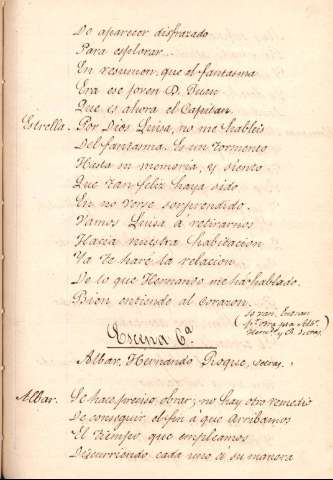 De aparecer disfrazado
Para esplorar...
En resumen, que el fantasma
Era ese joven D. Juan
Que es ahora el Capitan.
Estrella. Por Dios Luisa, no me habléis
Del fantasma. Es un tormento
Hasta su memoria, y siento
Que tan feliz haya sido
En no verse sorprendido.
Vamos Luisa á retirarnos
Hacia nuestra habitacion
Ya te haré la relacion
De lo que Hernando me há hablado.
Bien entiendo al corazon.
(Se van. Entran
pr. otra pta Alb.
Hern. y R.
Escena 6ª
Albar, Hernando Roque,
Albar. Se hace preciso obrar; no hay otro remedio
De conseguir el fin á que arribamos
El tiempo, que empleamos
Discurriendo cada uno á su manera